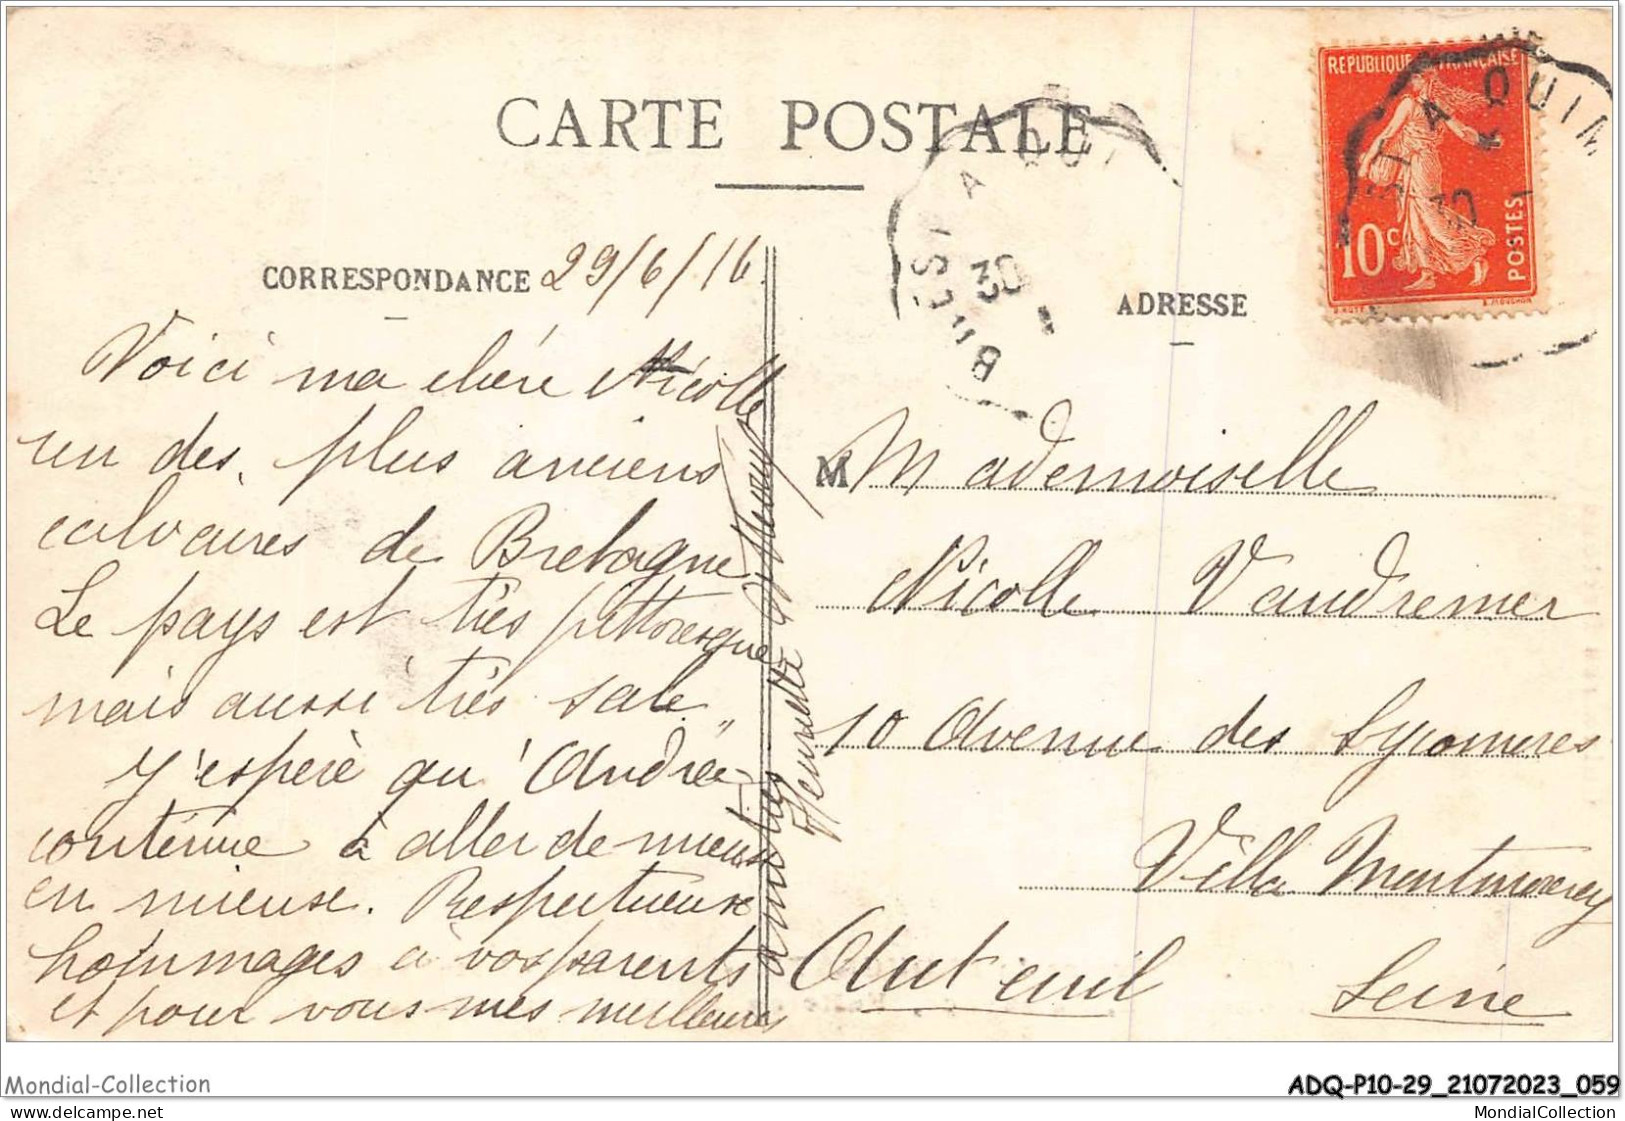 CARTE POSTALE
CORRESPONDANCE 29/6/16.
Voici ma chère Nicolle
un des plus anciens
calvaires de Bretagne
Le pays est très pittoresque
mais aussi très sale.
J'espère qu'Andrée
continue à aller de mieux
en mieux. Respectueux
hommages à vos parents
et pour vous mes meilleures
amitiés
BREST A QUIM
30
ADRESSE
REPUBLIQUE FRANÇAISE
10c
POSTES
BREST A QUIM
30
M Mademoiselle
Nicolle Vaudremer
10 Avenue des Sycomores
Villa Montmorency
Auteuil Seine
Mondial-Collection
ADQ-P10-29_21072023_059
delcampe.net
MondialCollection